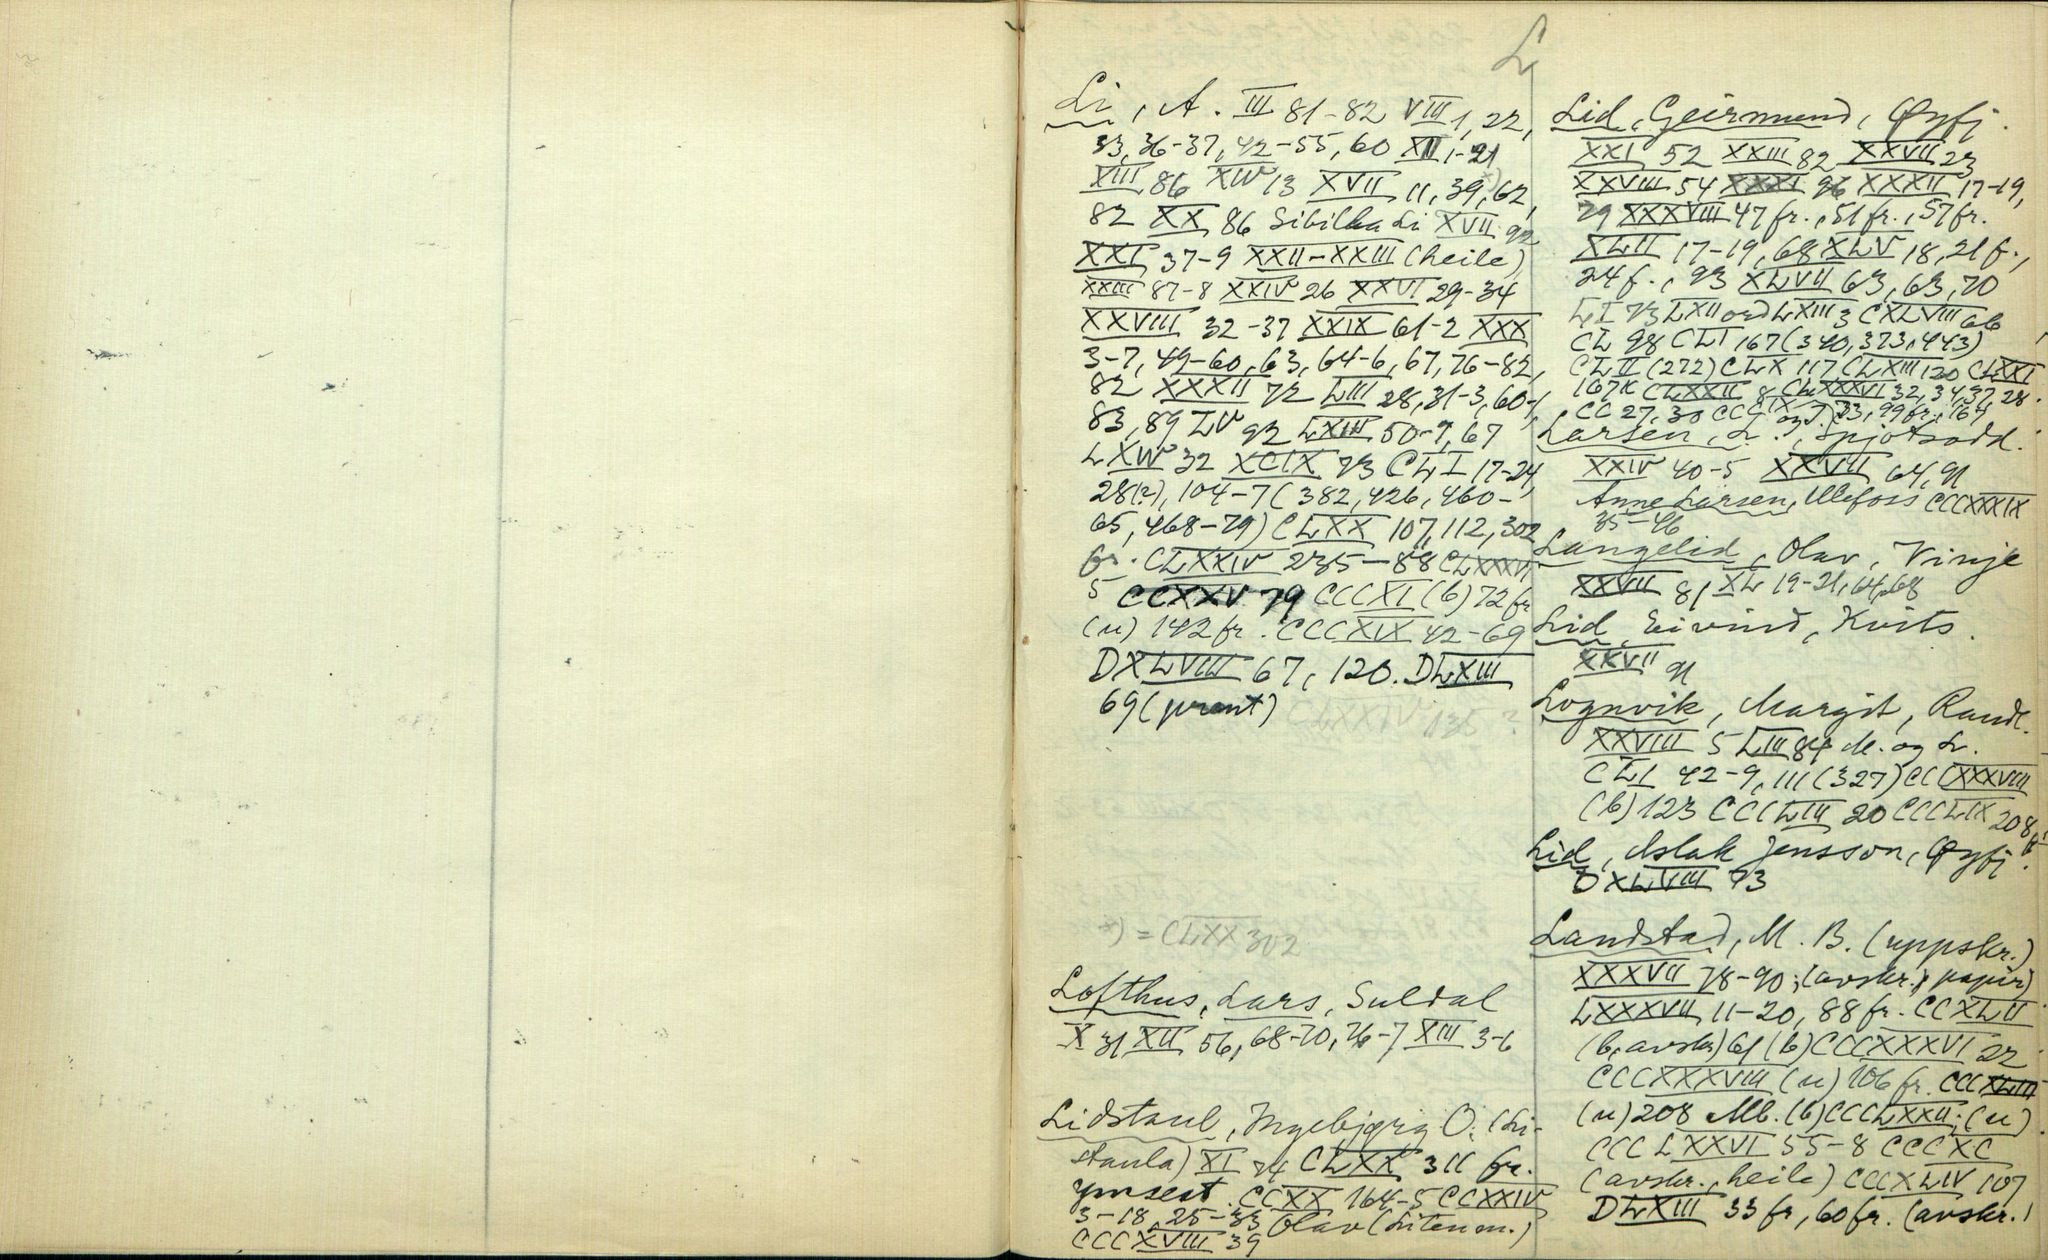 L
Li, A. III 81-82 VIII 1, 22,
33, 36-37, 42-55, 60 XII 1-21
XIII 86 XIV 13 XVII 11, 39, 62,
82 XX 86 Sibilka Li XVII 92
XXI 37-9 XXII-XXIII (heile)
XXIII 87-8 XXIV 26 XXVI 29-34
XXVIII 32-37 XXIX 61-2 XXX
3-7, 49-60, 63, 64-6, 67, 76-82,
82 XXXII 72 LIII 28, 31-3, 60-1,
83, 89 LV 92 LXIII 50-7, 67
LXIV 32 XCIX 73 CLI 17-24,
28(?), 104-7 (382, 426, 460-
65, 468-79) CLXX 107, 112, 302
fr. CLXXIV 235-88 CLXXXVI
5 CCXXV 79 CCCXI (b) 72 fr
(u) 142 fr. CCCXIX 42-69
DXLVIII 67, 120. DLXIII
69 (prent) CLXXIV 135?
x) = CLXX 302
Lofthus, Lars, Suldal
X 31 XII 56, 68-70, 76-7 XIII 3-6
Lidstaul, Ingebjørg O. (Li-
staula) XI 74 CLXX 311 fr.
ymsest. CCXX 164-5 CCXXIV
3-18, 25-33 Olav (Litenm.)
CCCXVIII 39
Lid, Geirmund, Øyfj.
XXI 52 XXIII 82 XXVII 23
XXVIII 54 XXXI 96 XXXII 17-19,
29 XXXVIII 47 fr., 51 fr., 57 fr.
XLII 17-19, 68 XLV 18, 21 f.,
24 f., 93 XLVII 63, 63, 70
LI 73 LXII ord LXIII 3 CXLVIII 66
CL 98 CLI 167 (340, 373, 443)
CLII (272) CLX 117 CLXIII 120 CLXXI
167 CLXXII 8 CLXXXVI 32, 34, 37, 28.
CC 27, 30 CCC 33, 99 fr., 164
Larsen, L., Spjotsodd.
XXIV 40-5 XXVII 64, 91
Anne Larsen, Ulefoss CCCXXXIX
35-46
Langelid, Olav, Vinje
XXVII 81 XL 19-21, 64, 68
Lid, Eivind, Kvits.
XXVII 91
Lognvik, Margit, Raul.
XXVIII 5 LIII 84 M. og L.
CLI 42-9, 111 (327) CCCXXXVIII
(b) 123 CCCLIII 20 CCCLIX 208
Lid, Aslak Jensson, Øyfj.
DXLVIII 73
Landstad, M. B. (uppskr.)
XXXVII 78-90; (avskr., papir)
LXXXVII 11-20, 88 fr. CCXLII
(b, avskr) 61 (b) CCCXXXVI 22
CCCXXXVIII (u) 106 fr. CCCXLIII
(u) 208 Mb. (b) CCCLXXII; (u)
CCCLXXVI 55-8 CCCXC
(avskr., heile) CCCXLIV 107
DLXIII 33 fr, 60 fr. (avskr.)